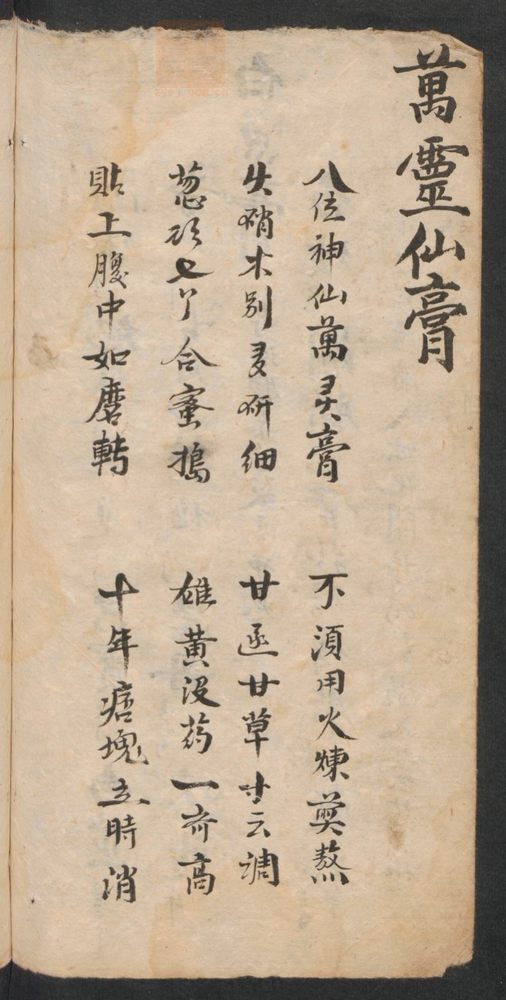 萬靈仙膏
八位神仙萬灵膏 不須用火煉熬
硝木别研细 甘遂甘草寸云調
葱頭七个合蜜搗 雄黄没药一齐高
貼上腹中如磨轉 十年痞塊立時消